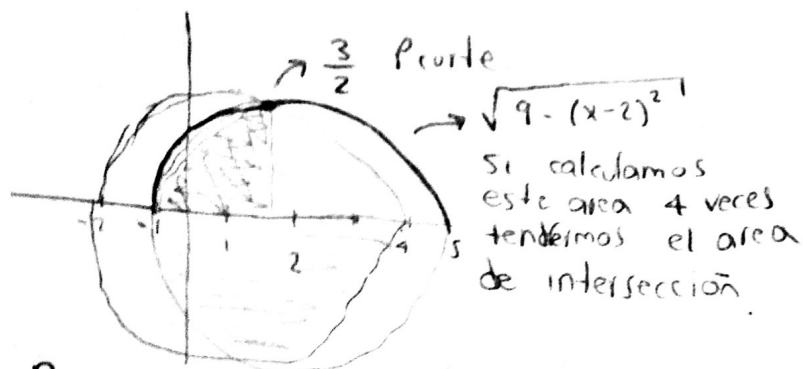 3/2 Pcorte
√9 - (x-2)²
Si calculamos
este area 4 veces
tendremos el area
de intersección.
-1 1 2 4 5